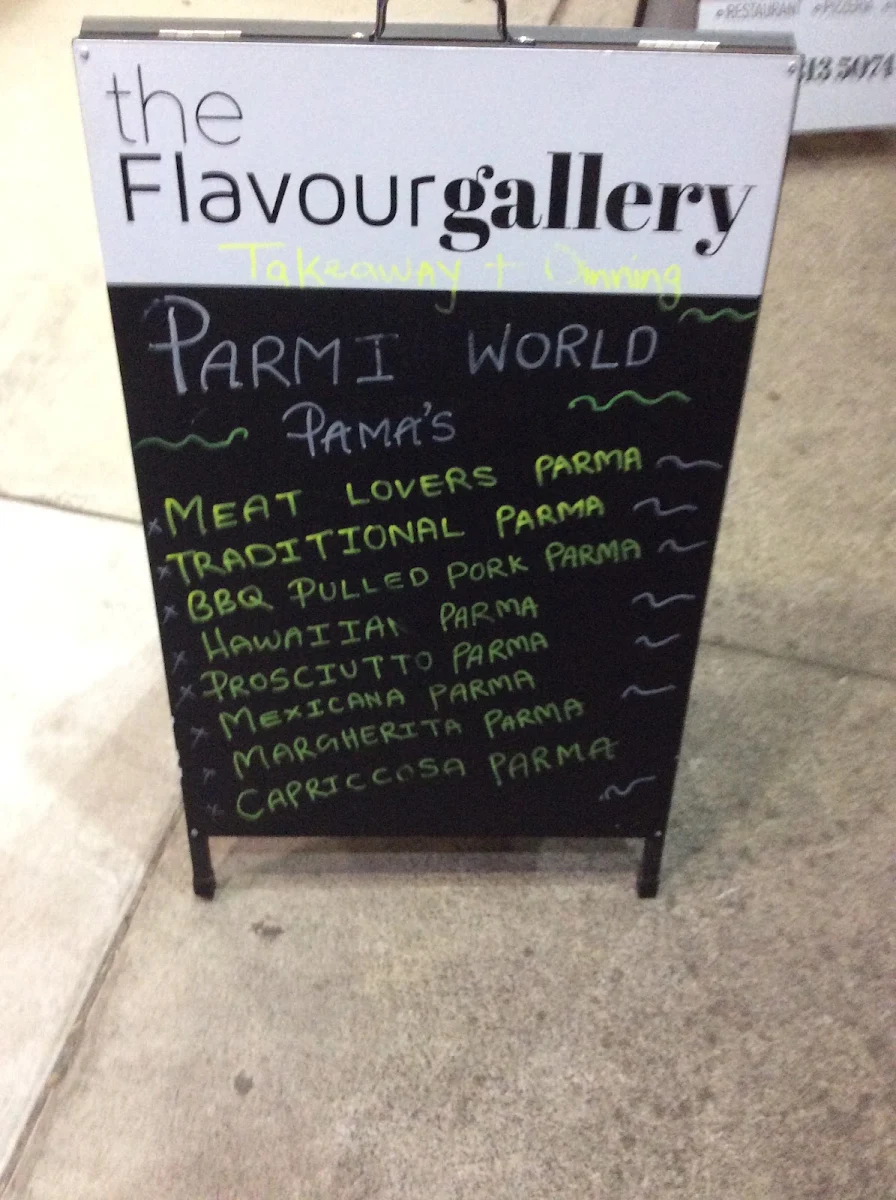 the
Flavourgallery
Takeaway + Dinning
PARMI WORLD
PAMA'S
x MEAT LOVERS PARMA ~
x TRADITIONAL PARMA ~
x BBQ PULLED PORK PARMA ~
x HAWAIIAN PARMA ~
x PROSCIUTTO PARMA ~
x MEXICANA PARMA ~
x MARGHERITA PARMA
x CAPRICCOSA PARMA ~
RESTAURANT
13 5074